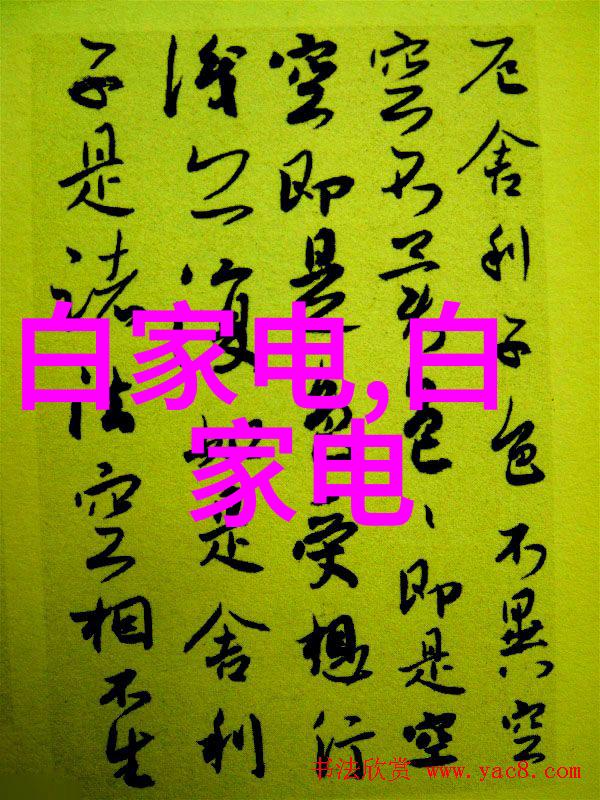 厄舍利子色不異空
空不異色、即是空
空即是色受想行
識亦復如是舍利
子是諸法空相不生
白家电,白
家电
书法欣赏 www.yac8.com